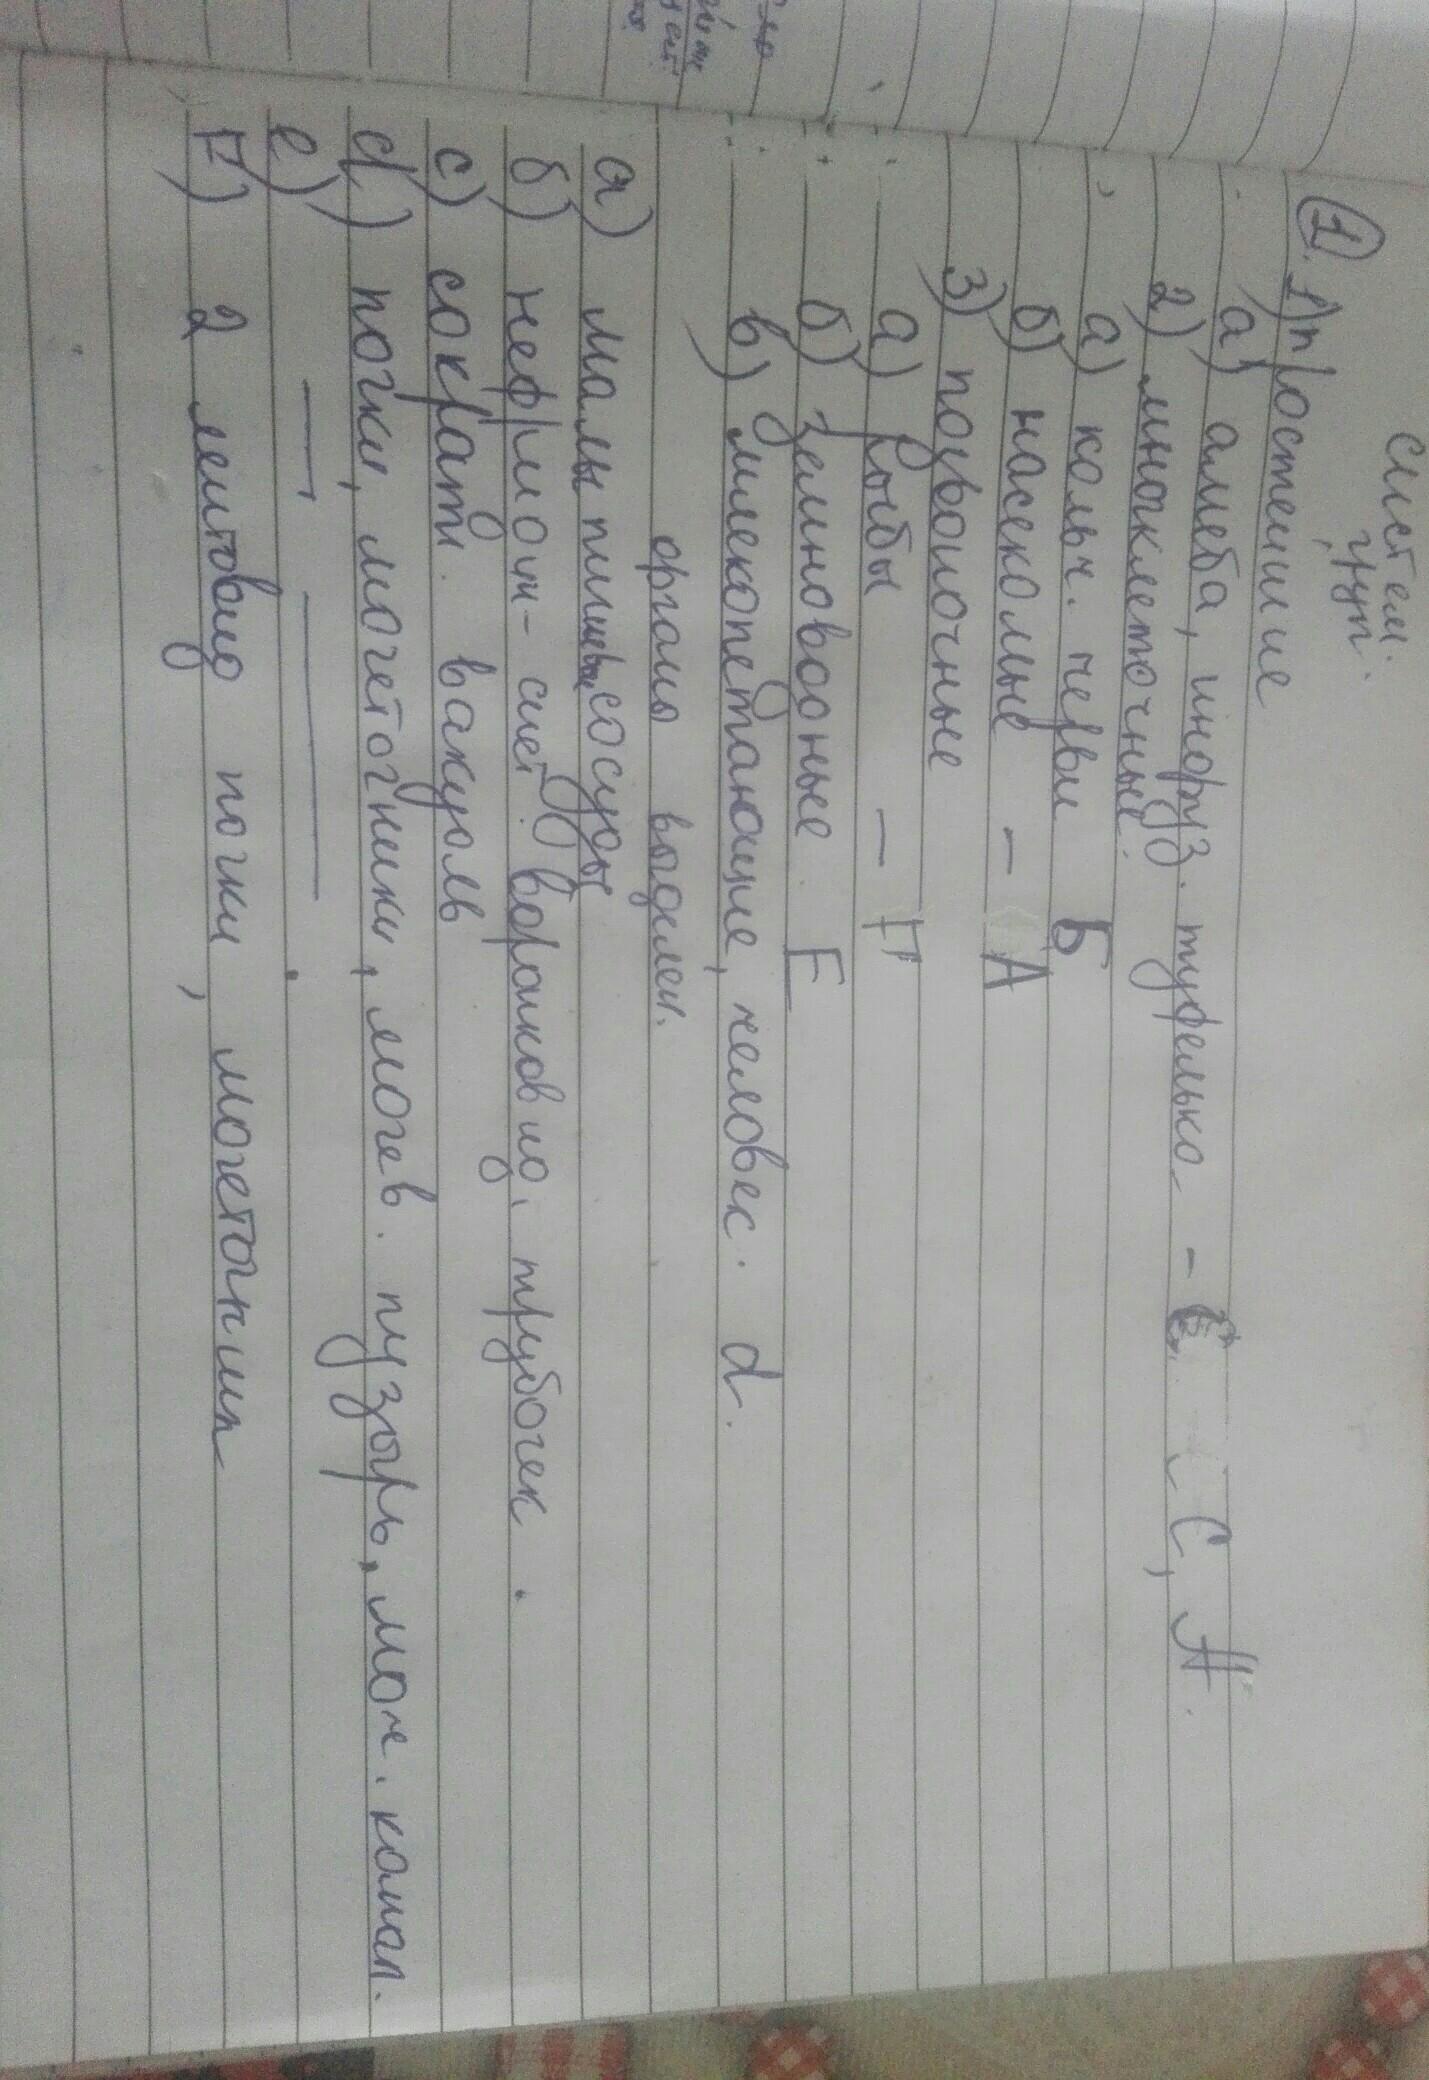 систем.
груп.
1. 1) простейшие
а) амеба, инфуз. туфелька - С, А.
2) многоклеточные.
а) кольч. черви Б
б) насекомые - А
3) позвоночные
а) рыбы - F
б) земноводные F
в) млекопетающие, человек. d.
органы выделен.
а) мальпигиевы сосуды
б) нефроди- сист воронковид. трубочек.
с) сократ. вакуоль
d) почки, мочеточники, мочев. пузырь, моч. канал.
е) — —.
F) 2 лентовид почки, мочеточник